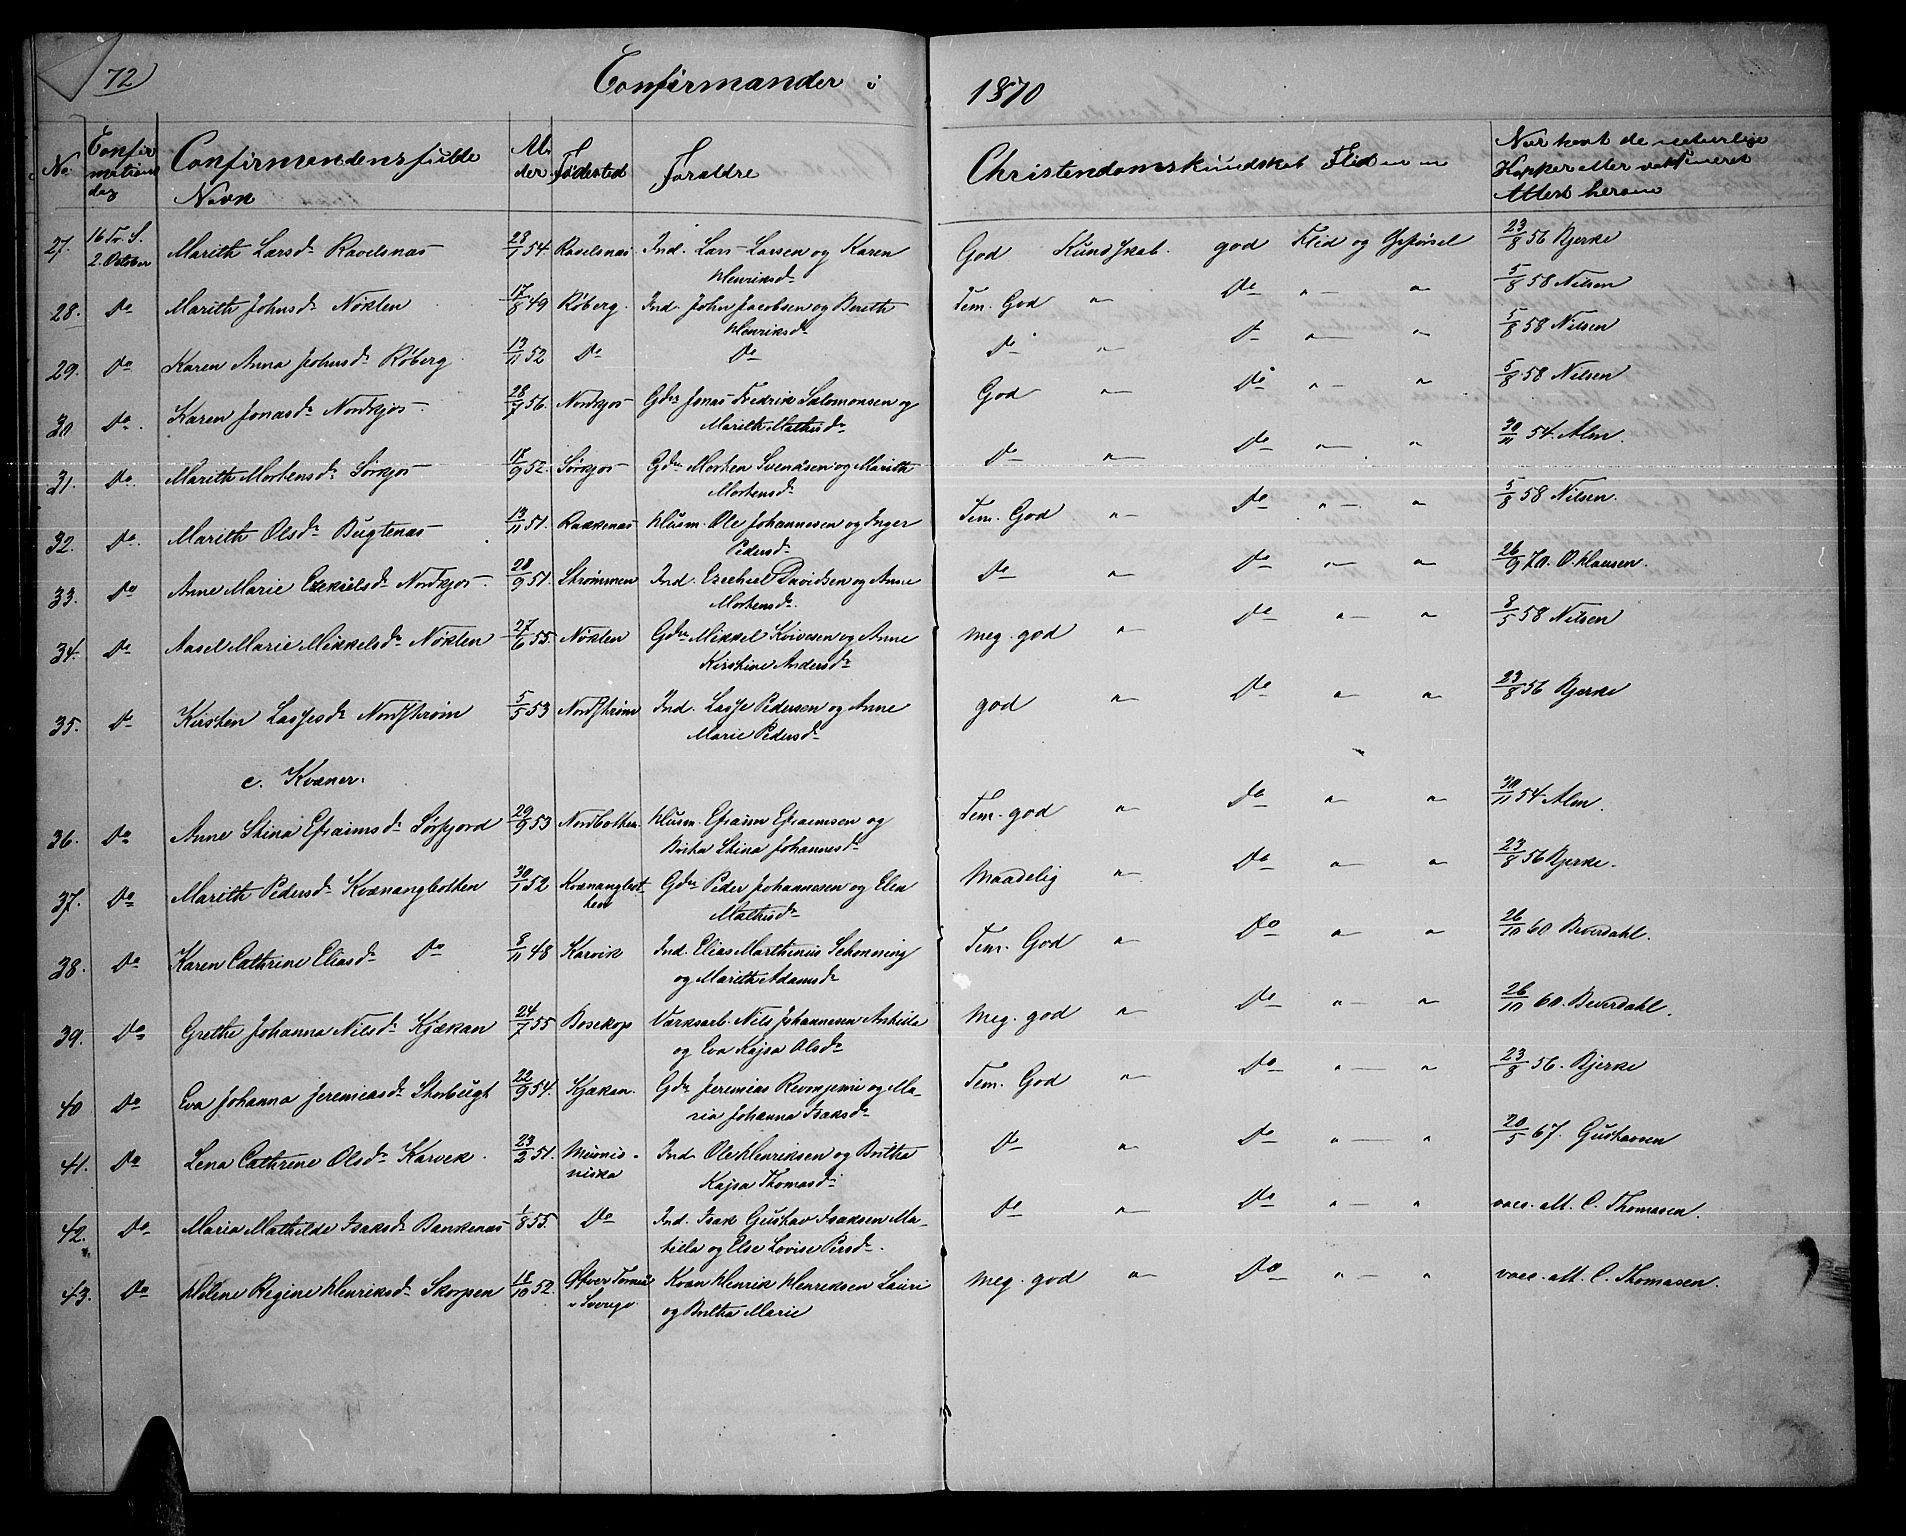 72) Confirmander i 1870
No Confirmations dag Confirmandens fulde Navn Alder Fødested Forældre Christendomskundskab Flid m m Naar havt de naturlige Kopper eller vaksineret Attest herom
27. 16 Tr. S. 2. October Marith Larsd. Ravelsnas 23/7 54 Ravelsnas Ind. Lars Larsen og Karen God Kundskab god Flid og Opførsel 23/8 56 Bjerke
Henriksd.
28. Do Marith Johnsd. Nøklen 17/8 49 Røberg. Ind. John Jacobsen og Bereth Tem. God " Do " " 5/8 58 Nilsen
Henriksd.
29. Do Karen Anna Johnsd. Røberg 13/11 52 Do Do Do " D " " 5/8 58 Nilsen
30 Do. Karen Jonasd. Nordkjos 28/7 56. Nordkjos Gdr Jonas Fredrik Salomonsen og God " Do " " 5/8 58 Nilsen
Marith Mathisd.
31. Do. Marith Mortensd. Sørkjos 18/9 52. Sørkjos Gdr. Morten Svendsen og Marith Do " Do " " 30/11 54. Alm.
Mortensd.
32. Do. Marith Olsd. Bugtenas 13/11 51. Rakkenas Husm. Ole Johannesen og Inger Tem. God " Do " " 5/8 58 Nilsen.
Pedersd.
33. Do Anne Marie Ezekielsd. Nordkjos 28/9 51. Strømmen Ind. Ezechiel Davidsen og Anne Do " Do " " 26/9 70. O. Klausen.
Mortensd.
34. Do Aasel Marie Mikkelsd. Nøklen 27/6 55. Nøklen Gdr Mikkel Kvivesen og Anne meg. god " Do " " 8/5 58 Nilsen
Kirstine Andersd.
35. D Kirsten Lassesd. Nordstrøm 5/5 53 Nordstrøm Ind. Lasse Pedersen og Anne god " Do " " 23/8 56 Bjerke
Marie Pedersd.
c. Kvæner.
36. Do Anne Stina Efraimsd. Sørfjord 29/9 53 Nordbotten. Husm. Efraim Efraimsen og Tem. god " Do " " 30/11 54 Alm.
Brita Stina Johannesd.
37. Do Marith Pedersd. Kvænangbotten 30/1 52 Kvænangbotten Gdr Peder Johannesen og Elen Maadelig " Do " " 23/8 56 Bjerke.
Mathisd.
38. Do Karen Cathrine Eliasd. Do 8/11 48 Karvik Ind. Elias Marthinus Schønning Tem. God " Do " " 26/10 60 Beverdahl.
og Marith Adamsd.
39. Do Grethe Johanna Nilsd. Kjækan 24/7 55 Bosekop Værksarb. Nils Johannesen Anhilla meg. god " Do " " 26/10 60. Beverdahl.
og Eva Kajsa Olsd.
40 Do Eva Johanna Jeremiasd. Storbugt 22/9 54. Kjækan. Gdr Jeremias Rvompinie og Ma- Tem. God " Do " " 23/8 56. Bjerke
ria Johanna Isaksd.
41. Do Lena Cathrine Olsd. Karvek. 23/2 51. Muonioniska Ind. Ole Henriksen og Britha Do " Do " " 20/5 67. Gustavsen
Kajsa Thomasd.
42. Do Maria Mathilde Isaksd. Bankenas 1/8 55 Do Ind. Isak Gustav Isaksen Ma- Do " Do " " vacc. att. C. Thomasen.
tiila og Else Lovise Persd.
43. Do Helene Regine Henriksd. Skorpen 18/10 52. Øfver Torneå i Sverge. Kvæn Henrik Henriksen Lauri meg. god " Do " " vacc. att. C. Thomasen.
og Britha Marie